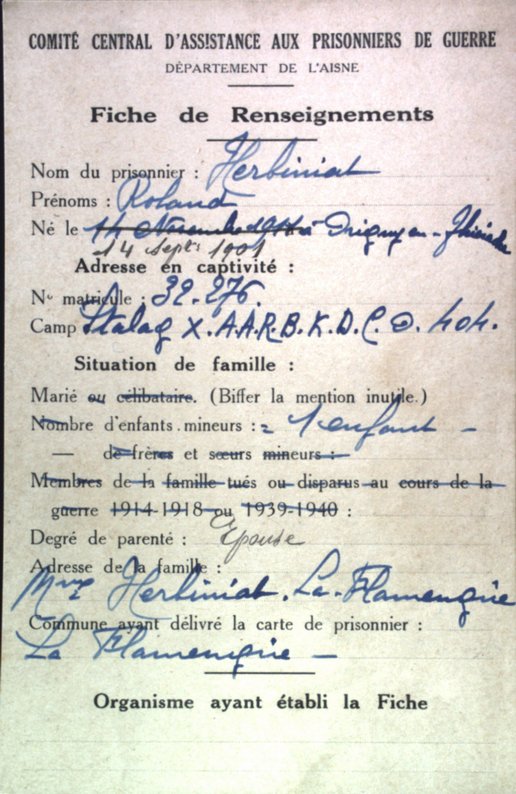 COMITÉ CENTRAL D'ASSISTANCE AUX PRISONNIERS DE GUERRE
DÉPARTEMENT DE L'AISNE
Fiche de Renseignements
Nom du prisonnier : Herbiniat
Prénoms : Roland
Né le 14 Novembre à
14 Sept 1901
Adresse en captivité :
No matricule : 32.276.
Camp Stalag X.A.A.R.B.K.D.C. 404.
Situation de famille :
Marié ou célibataire. (Biffer la mention inutile.)
Nombre d'enfants mineurs : = 1 enfant —
— de frères et sœurs mineurs :
Membres de la famille tués ou disparus au cours de la
guerre 1914-1918 ou 1939-1940 :
Degré de parenté : Epouse
Adresse de la famille :
Mme Herbiniat. La Flamengrie
Commune ayant délivré la carte de prisonnier :
La Flamengrie —
Organisme ayant établi la Fiche